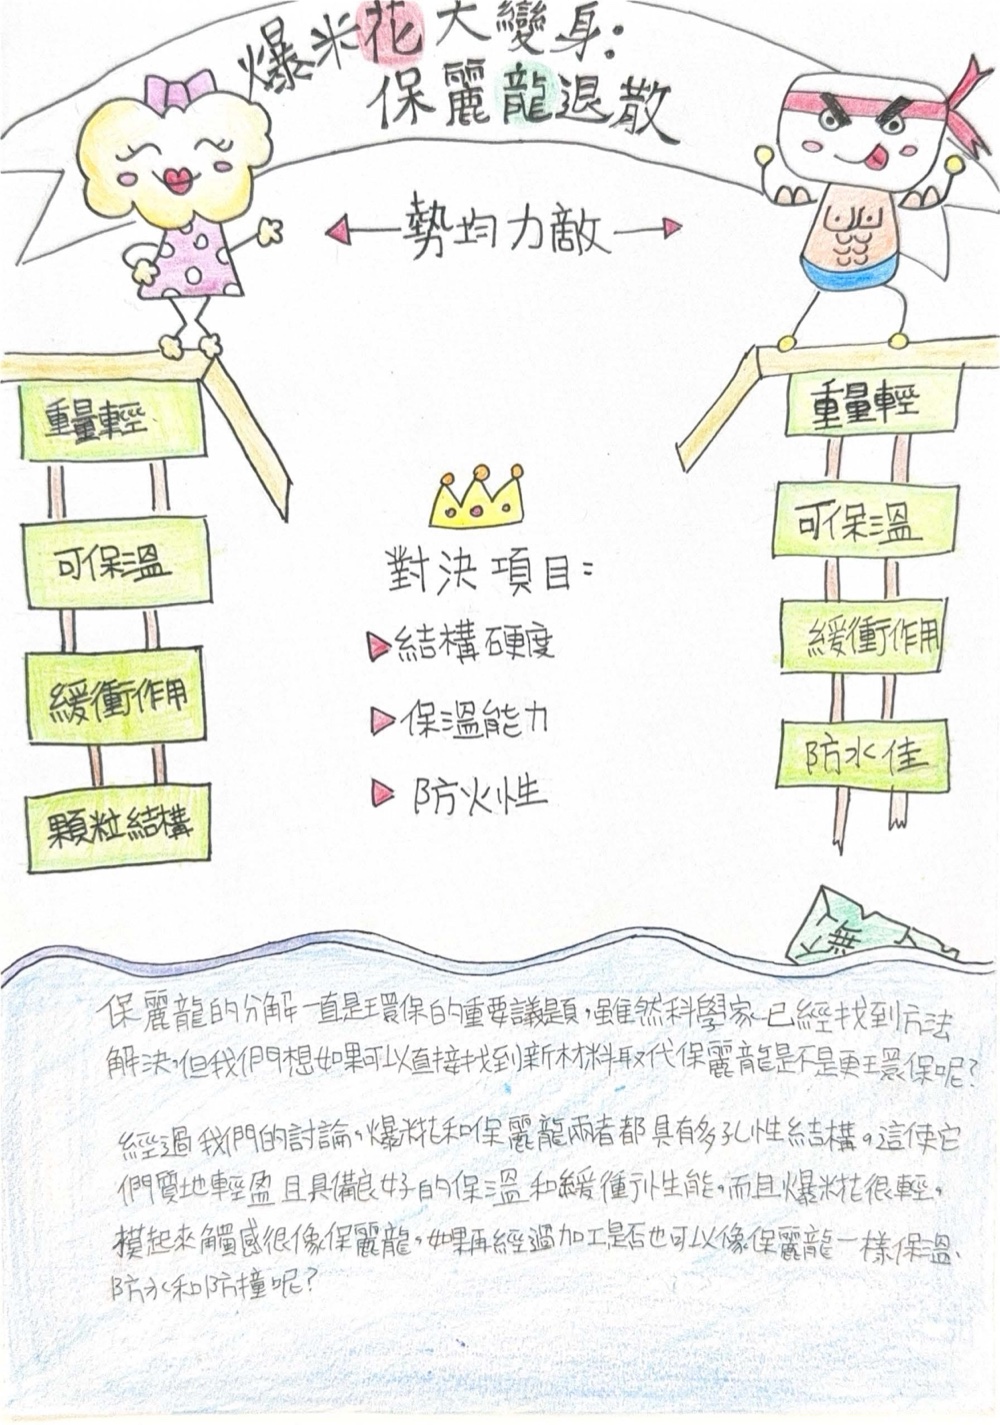 爆米花大變身:
保麗龍退散
勢均力敵
重量輕
可保溫
緩衝作用
顆粒結構
重量輕
可保溫
緩衝作用
防水佳
對決項目:
結構硬度
保溫能力
防火性
無
保麗龍的分解一直是環保的重要議題,雖然科學家已經找到方法
解決,但我們想如果可以直接找到新材料取代保麗龍是不是更環保呢?
經過我們的討論,爆米花和保麗龍兩者都具有多孔性結構。這使它
們質地輕盈且具備良好的保溫和緩衝性能,而且爆米花很輕,
摸起來觸感很像保麗龍,如果再經過加工是否也可以像保麗龍一樣保溫、
防水和防撞呢?